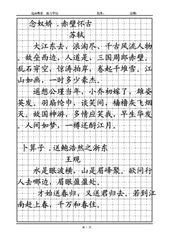 念奴娇·赤壁怀古
苏轼
大江东去，浪淘尽，千古风流人物
。故垒西边，人道是，三国周郎赤壁。
乱石穿空，惊涛拍岸，卷起千堆雪。江
山如画，一时多少豪杰。
遥想公瑾当年，小乔初嫁了，雄姿
英发。羽扇纶巾，谈笑间，樯橹灰飞烟
灭。故国神游，多情应笑我，早生华发
。人间如梦，一樽还酹江月。
卜算子·送鲍浩然之浙东
王观
水是眼波横，山是眉峰聚。欲问行
人去哪边，眉眼盈盈处。
才始送春归，又送君归去。若到江
南赶上春，千万和春住。